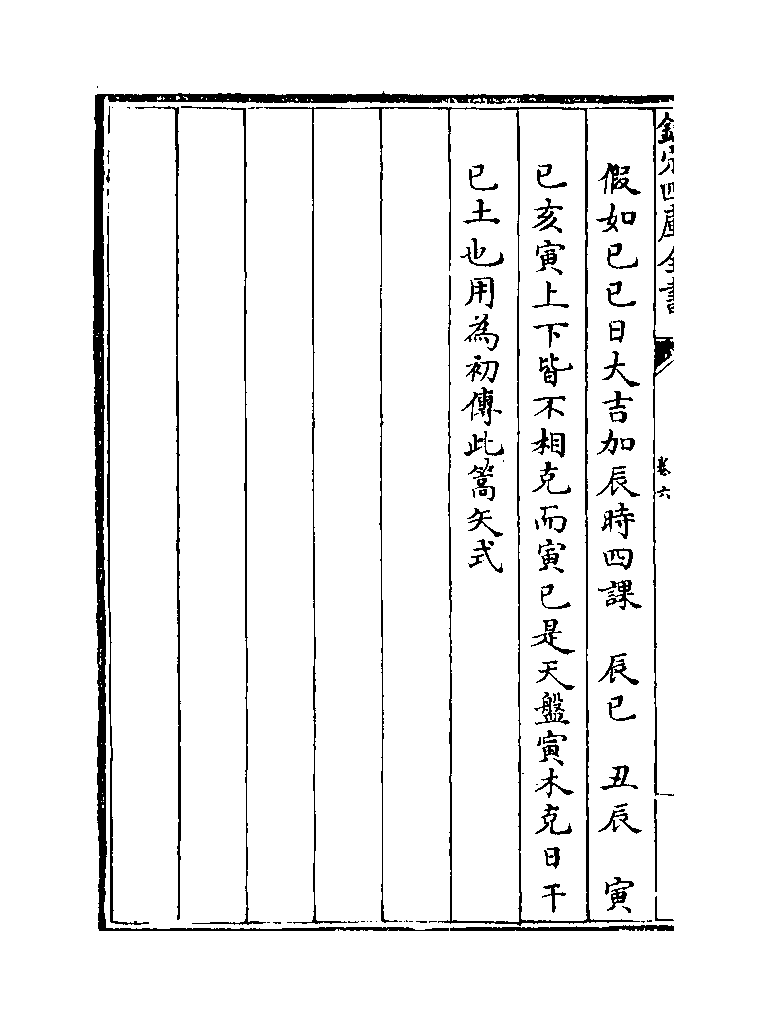 欽定四庫全書
卷六
假如己巳日大吉加辰時四課　辰己　丑辰　寅
巳亥寅上下皆不相克而寅巳是天盤寅木克日干
己土也用為初傳此蒿矢式